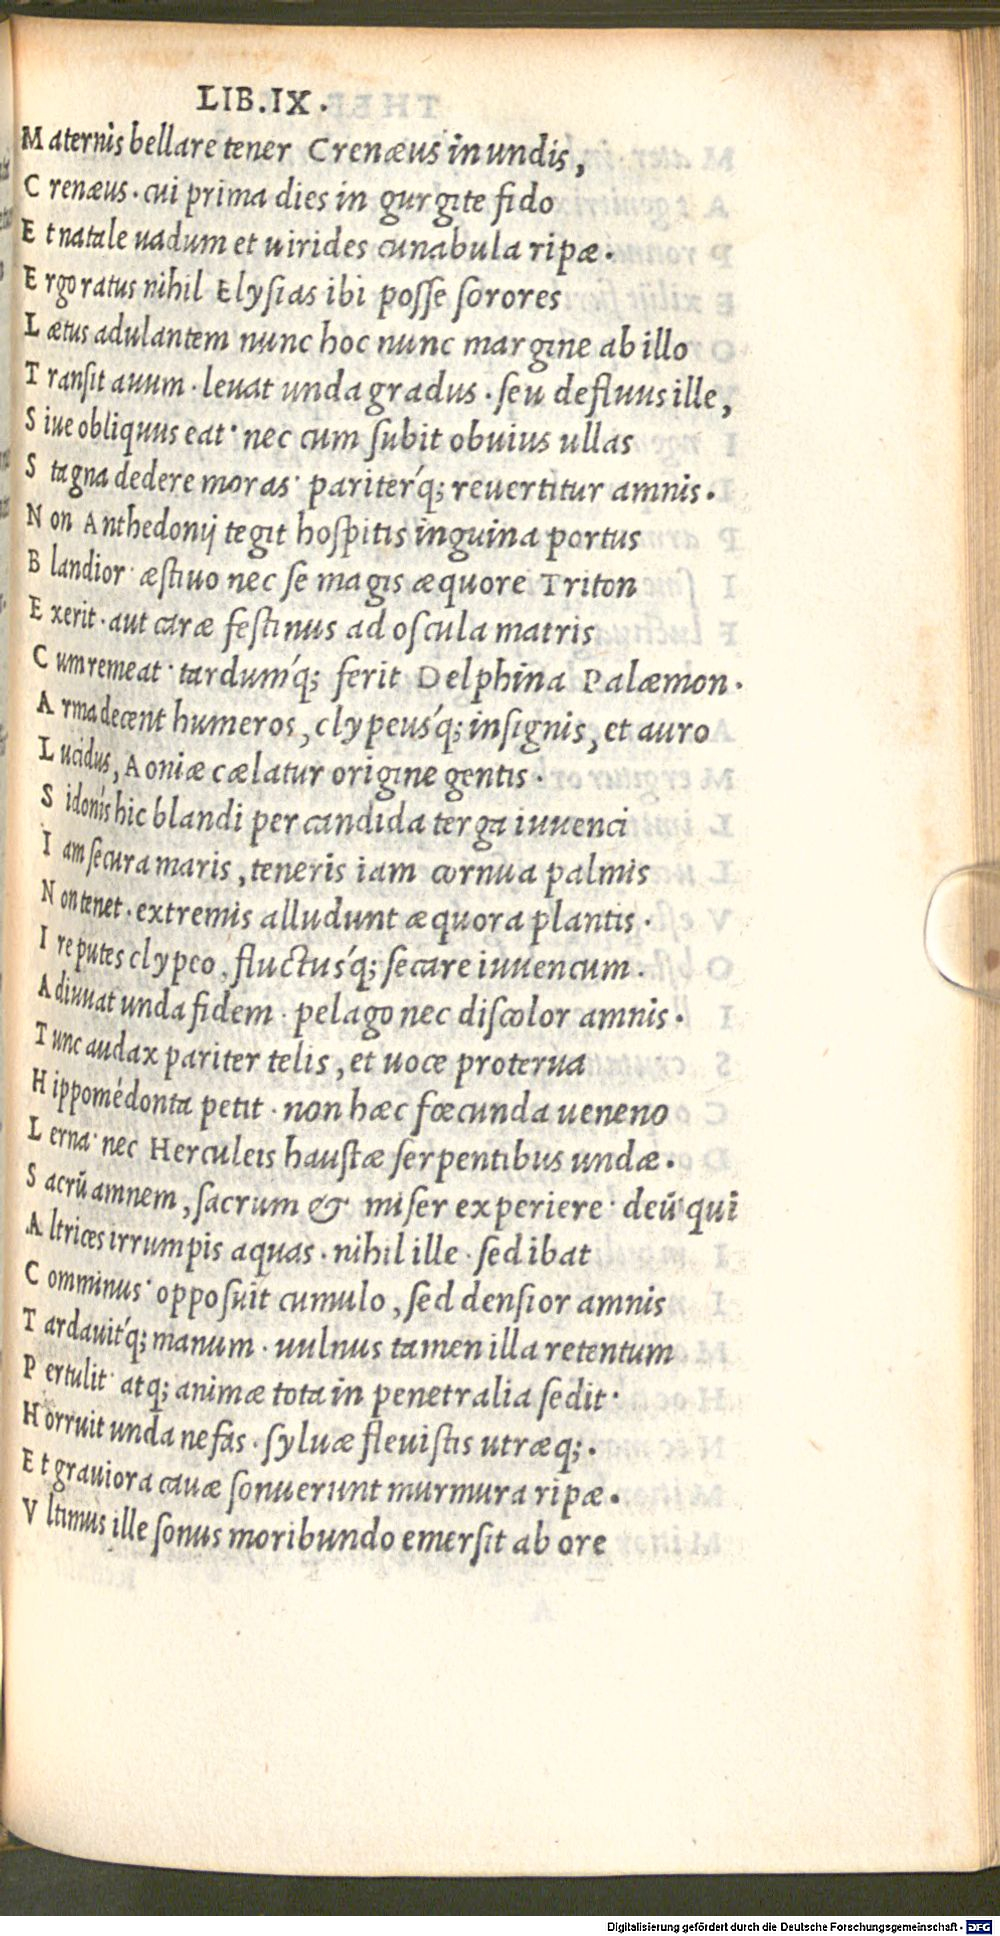 LIB.IX.
Maternis bellare tener Crenæus in undis,
Crenæus. cui prima dies in gurgite fido
Et natale uadum et uirides cunabula ripæ.
Ergo ratus nihil Elysias ibi posse sorores
Lætus adulantem nunc hoc nunc margine ab illo
Transit auum. leuat unda gradus. seu defluus ille,
Siue obliquus eat· nec cum subit obuius ullas
Stagna dedere moras· pariterq́; reuertitur amnis.
Non Anthedonij tegit hospitis inguina portus
Blandior· æstiuo nec se magis æquore Triton
Exerit. aut caræ festinus ad oscula matris
Cum remeat· tardumq́; ferit Delphina Palæmon.
Arma decent humeros, clypeusq́; insignis, et auro
Lucidus, Aoniæ cælatur origine gentis.
Sidonis hic blandi per candida terga iuuenci
Iam secura maris, teneris iam cornua palmis
Non tenet. extremis alludunt æquora plantis.
Ire putes clypeo, fluctusq́; secare iuuencum.
Adiuuat unda fidem. pelago nec discolor amnis.
Tunc audax pariter telis, et uoce proterua
Hippomédonta petit. non hæc fœcunda ueneno
Lerna· nec Herculeis haustæ serpentibus undæ.
Sacrū amnem, sacrum & miser experiere· deū qui
Altrices irrumpis aquas. nihil ille. sed ibat
Comminus· opposuit cumulo, sed densior amnis
Tardauitq́; manum. uulnus tamen illa retentum
Pertulit· atq; animæ tota in penetralia sedit·
Horruit unda nefas. syluæ fleuistis utræq;.
Et grauiora cauæ sonuerunt murmura ripæ.
Vltimus ille sonus moribundo emersit ab ore
Digitalisierung gefördert durch die Deutsche Forschungsgemeinschaft - DFG